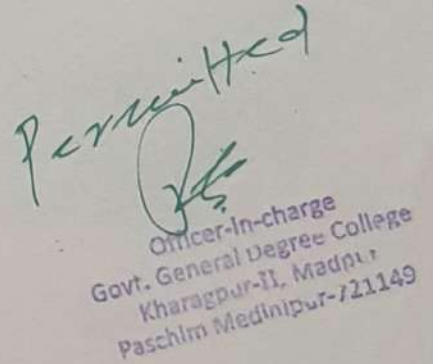 Permitted
Officer-in-charge
Govt. General Degree College
Kharagpur-II, Madpur
Paschim Medinipur-721149